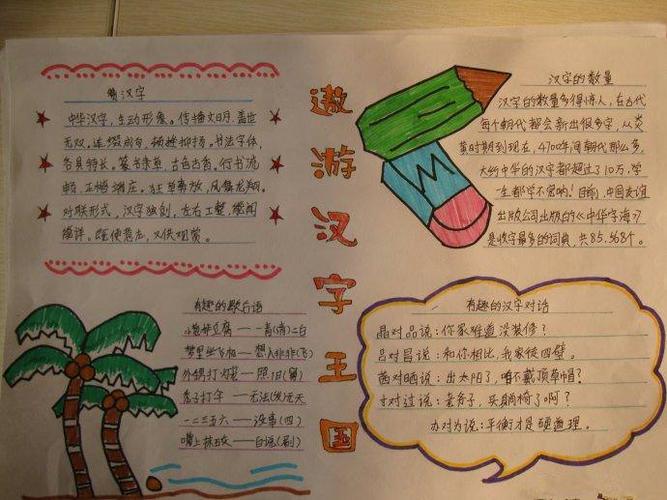 赞汉字
中华汉字,生动形象。传播文明,盖世
无双,连缀成句,顿挫抑扬。书法字体,
各具特长。篆书隶草,古色古香。行书流
畅,正楷端庄。狂草奔放,凤翥龙翔。
对联形式,汉字独创,左右工整,
模样。既便,又供观赏。
遨游汉字王国
汉字的数量
汉字的数量多得惊人,在古代
每个朝代都会新出很多字,从炎
黄时期到现在,4700年间朝代那么多,
大约中华的汉字都超过了10万,学
一生都学不完呐!目前,中国友谊
出版公司出版的《中华字海》
是收字最多的词典,共85,568个。
有趣的歇后语
小葱拌豆腐——一青(清)二白
梦里坐飞机——想入非非(飞)
外甥打灯笼——照旧(舅)
秃子打伞——无法(发)无天
一二三五六——没事(四)
嘴上抹石灰——白说(刷)
有趣的汉字对话
晶对品说:你家难道没装修?
吕对昌说:和你相比,我家徒四壁。
茜对晒说:出太阳了,咱不戴顶草帽?
寸对过说:老爷子,买躺椅了啊?
办对为说:平衡才是硬道理。